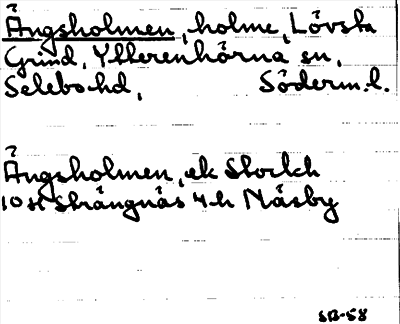 Ängsholmen, holme, Lövsta
Grind, Ytterenhörna sn,
Selebo hd, Söderm.l.
Ängsholmen, ek Stockh
10 si Strängnäs 4-h Näsby
SB-58